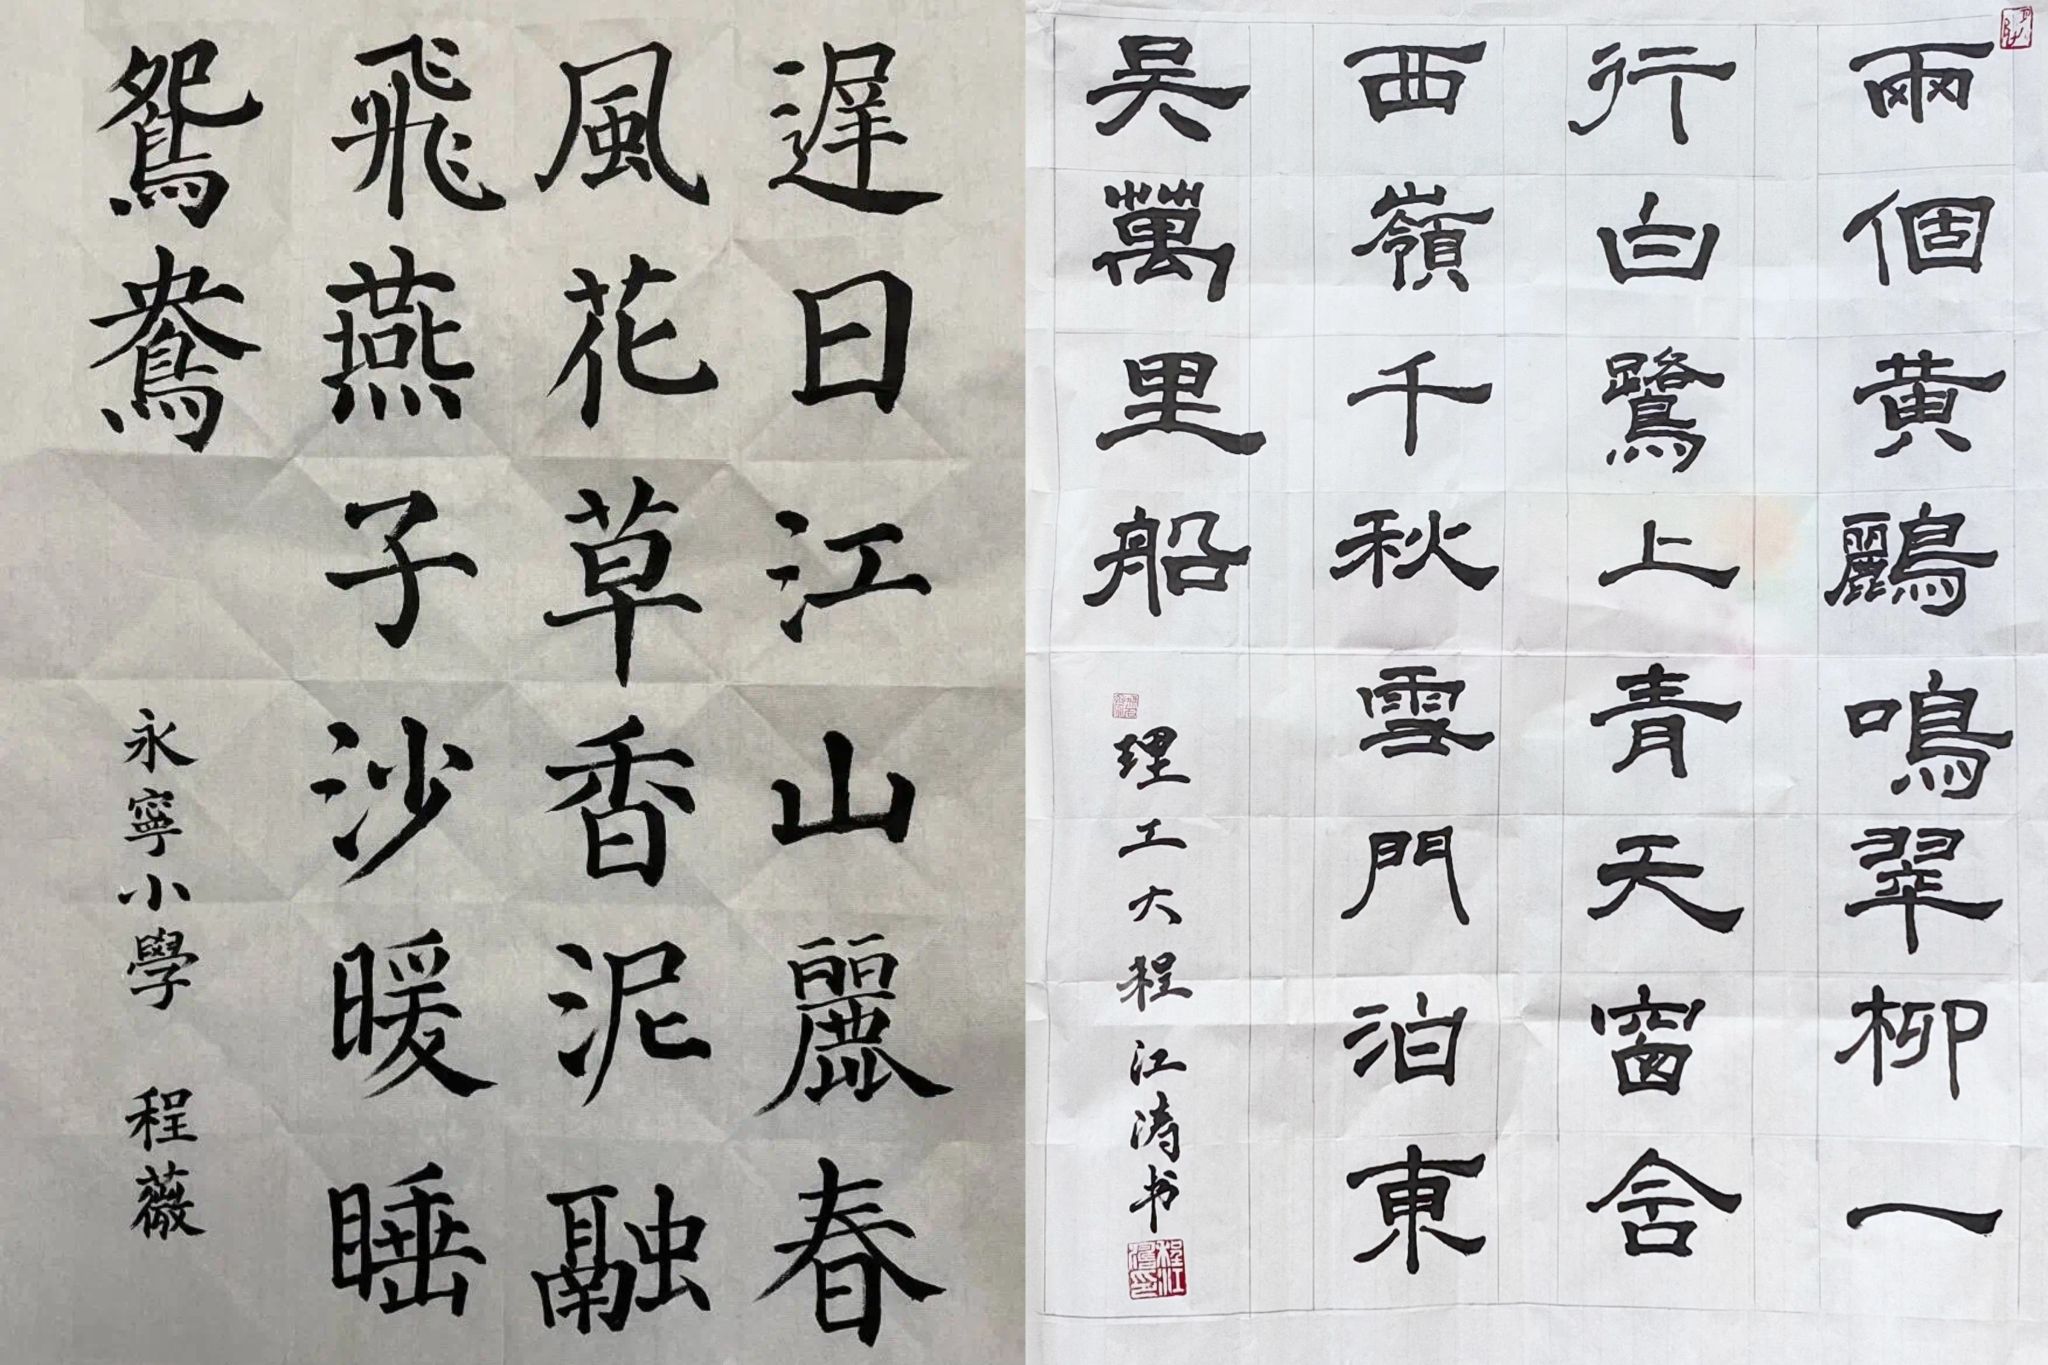 遲日江山麗春
風花草香泥融
飛燕子沙暖睡
鴛鴦
永寧小學 程薇
兩個黃鸝鳴翠柳一
行白鷺上青天窗含
西嶺千秋雪門泊東
吳萬里船
理工大程江涛书
程江濤印